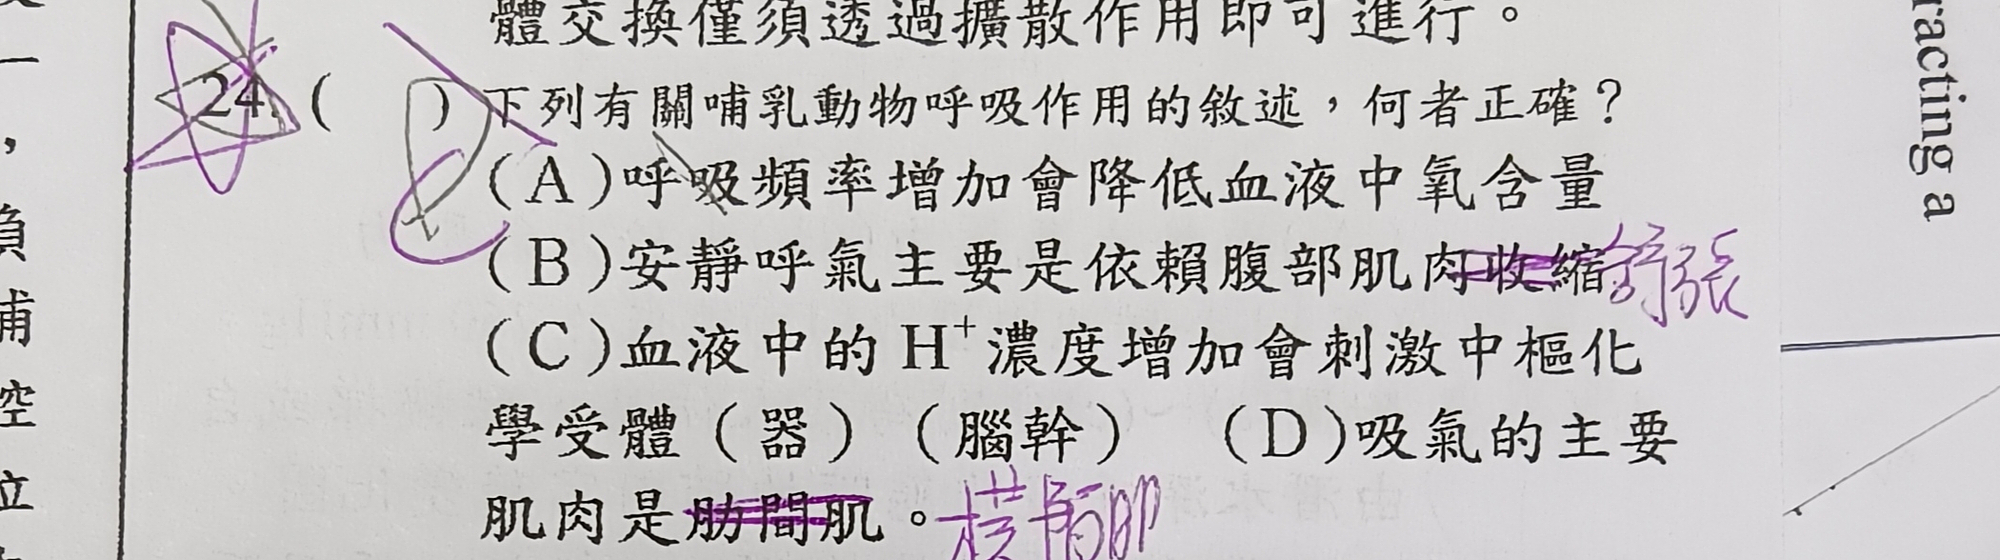 體交換僅須透過擴散作用即可進行。
24. (　　) 下列有關哺乳動物呼吸作用的敘述,何者正確?
(A)呼吸頻率增加會降低血液中氧含量
(B)安靜呼氣主要是依賴腹部肌肉收縮 舒張
(C)血液中的 H⁺ 濃度增加會刺激中樞化
學受體(器)(腦幹) (D)吸氣的主要
肌肉是肋間肌。橫膈肌
racting a
一
,
負
哺
控
立